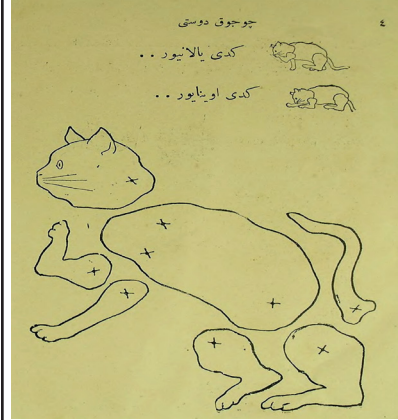 ٤
چوجوق دوستی
كدی یالانیور ..
كدی اوینایور ..